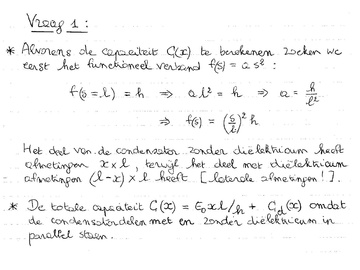 Vraag 1 :
* Alvorens de capaciteit C(x) te berekenen zoeken we
eerst het functioneel verband f(s) = a s² :
f(s = l) = h ⇒ a l² = h ⇒ a = h/l²
⇒ f(s) = (s/l)² h
Het deel van de condensator zonder diëlektricum heeft
afmetingen x × l, terwijl het deel met diëlektricum
afmetingen (l-x) × l heeft [laterale afmetingen !].
* De totale capaciteit C(x) = ε₀xl/h + C_d(x) omdat
de condensatordelen met en zonder diëlektricum in
parallel staan.